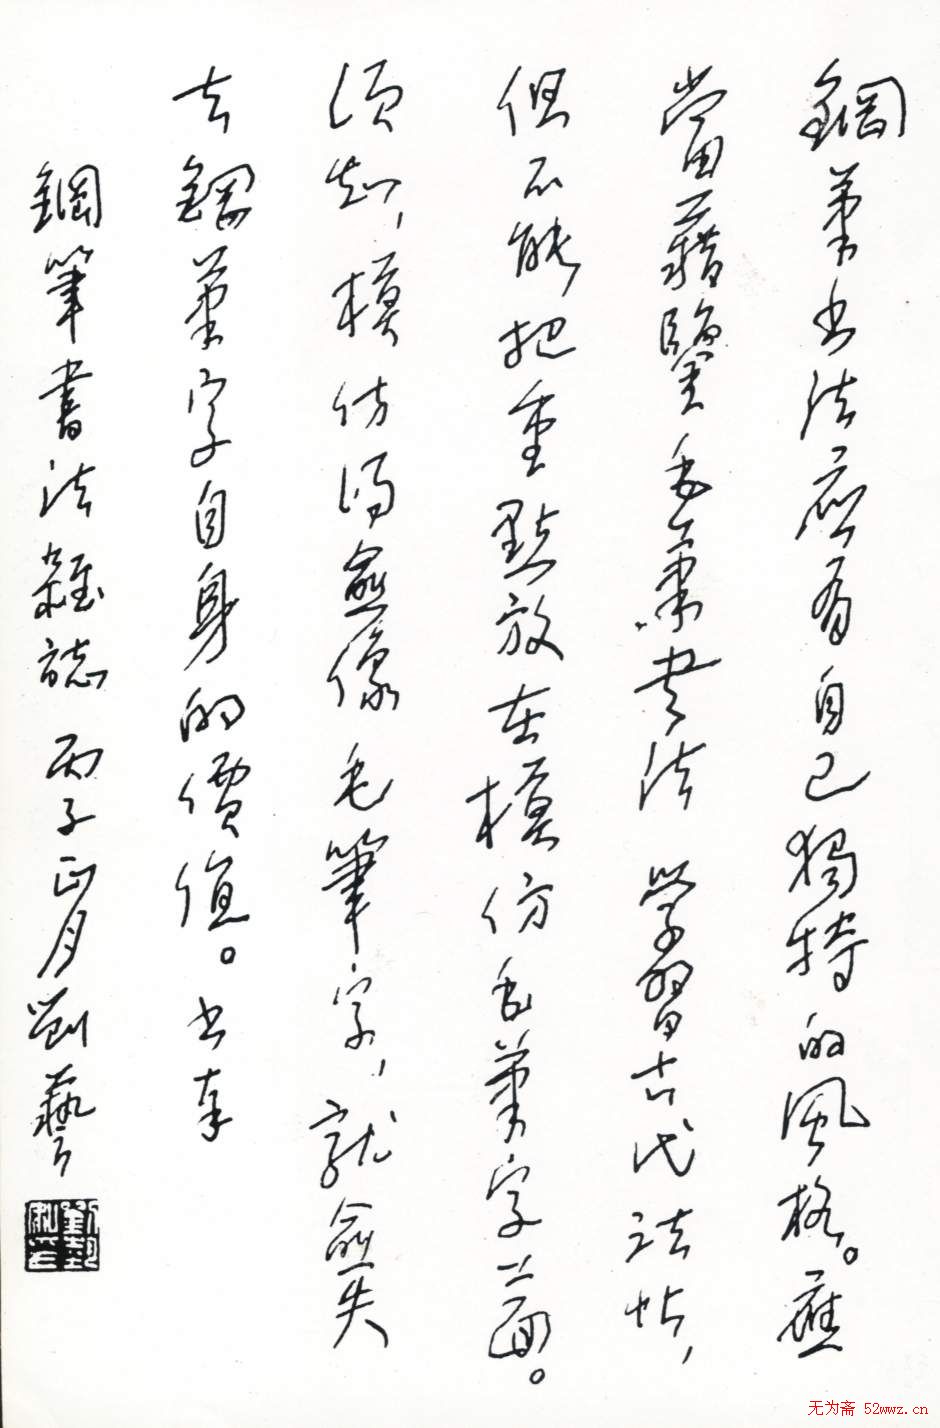 鋼筆书法應有自己獨特的風格。應
當藉鑒毛筆書法學習古代法帖，
但不能把重點放在模仿毛筆字上面。
須知，模仿得愈像毛筆字，就愈失
去鋼筆字自身的價值。书奉
鋼筆書法雜誌 丙子正月劉藝
无为斋 52wwz.cn